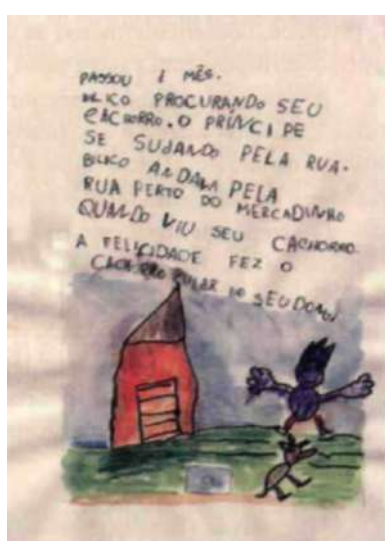 PASSOU 1 MÊS.
BLICO PROCURANDO SEU
CACHORRO. O PRÍNCIPE
SE SUJANDO PELA RUA.
BLICO ANDAVA PELA
RUA PERTO DO MERCADINHO
QUANDO VIU SEU CACHORRO.
A FELICIDADE FEZ O
CACHORRO PULAR NO SEU DONO.